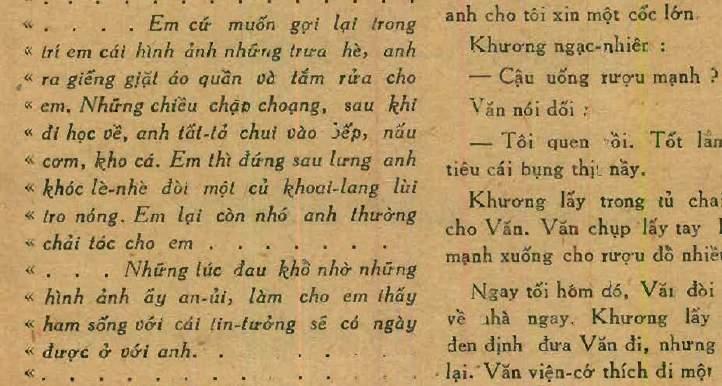 « . . . . . . . . . . . .
« . . . . Em cứ muốn gợi lại trong
« trí em cái hình ảnh những trưa hè, anh
« ra giếng giặt áo quần và tắm rửa cho
« em. Những chiều chập choạng, sau khi
« đi học về, anh tất-tả chui vào bếp, nấu
« cơm, kho cá. Em thì đứng sau lưng anh
« khóc lè-nhè đòi một củ khoai-lang lùi
« tro nóng. Em lại còn nhớ anh thường
« chải tóc cho em . . . . . . .
« . . . Những lúc đau khổ nhờ những
« hình ảnh ấy an-ủi, làm cho em thấy
« ham sống với cái tin-tưởng sẽ có ngày
« được ở với anh. . . . . . .
« . . . . . . . . . . . .
anh cho tôi xin một cốc lớn.
Khương ngạc-nhiên :
— Cậu uống rượu mạnh ?
Văn nói dối :
— Tôi quen rồi. Tốt lắm
tiêu cái bụng thịt nầy.
Khương lấy trong tủ chai
cho Văn. Văn chụp lấy tay
mạnh xuống cho rượu đổ nhiều
Ngay tối hôm đó, Văn đòi
về nhà ngay. Khương lấy
đen định đưa Văn đi, nhưng
lại. Văn viện-cớ thích đi một